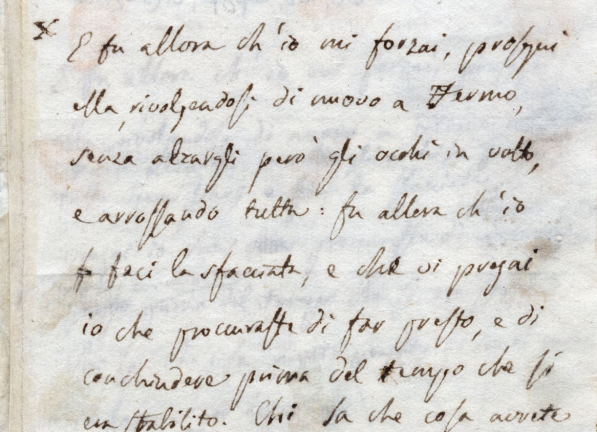 E fu allora ch'io mi forzai, proseguì
ella, rivolgendosi di nuovo a Fermo,
senza alzargli però gli occhi in volto,
e arrossando tutta: fu allora ch'io
feci la sfacciata, e che vi pregai
io che procuraste di far presto, e di
conchiudere prima del tempo che si
era stabilito. Chi sa che cosa avrete